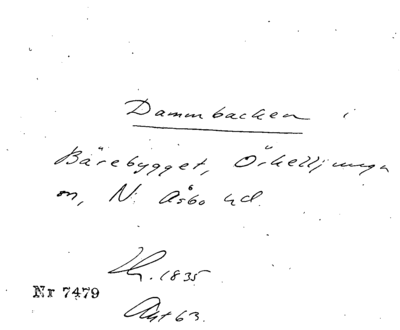 Dammbacken i
Bärebygget, Örkelljunga
sn, N. Åsbo hd.
1835
Nr 7479
63.